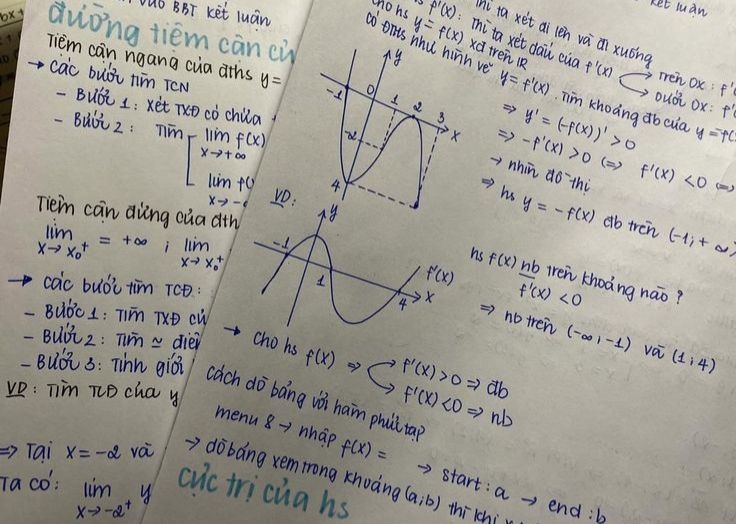 vào BBT kết luận
đường tiệm cận củ
Tiệm cận ngang của đths y =
→ các bước tìm TCN
- Bước 1: Xét TXĐ có chứa
- Bước 2: Tìm lim f(x)
x→+∞
lim f(
x→-
Tiệm cận đứng của đth
lim = +∞ ; lim
x→x₀⁺ x→x₀⁺
→ các bước tìm TCĐ:
- Bước 1: Tìm TXĐ củ
- Bước 2: Tìm ≃ điể
- Bước 3: Tính giới
VD: Tìm TCĐ của y
⇒ Tại x = -2 và
Ta có: lim y
x→-2⁺
kết luận
thì ta xét đi lên và đi xuống
f'(x): thì ta xét dấu của f'(x) trên Ox: f'
dưới Ox: f'
cho hs y = f(x) xđ trên R
có ĐTHS như hình vẽ y = f'(x). Tìm khoảng đb của y = f(
⇒ y' = (-f(x))' > 0
⇒ -f'(x) > 0 (⇒ f'(x) < 0 ⇔
→ nhìn đồ thị
⇒ hs y = -f(x) đb trên (-1; +∞)
y
-1 0 1 2 3 x
-2
4
VD:
y
-1 1 4 x
f'(x)
hs f(x) nb trên khoảng nào?
f'(x) < 0
⇒ nb trên (-∞; -1) và (1; 4)
→ cho hs f(x) ⇒ f'(x) > 0 ⇒ đb
f'(x) < 0 ⇒ nb
cách dò bảng với hàm phức tạp
menu 8 → nhập f(x) = → start: a → end: b
→ dò bảng xem trong khoảng (a;b) thì khi
cực trị của hs